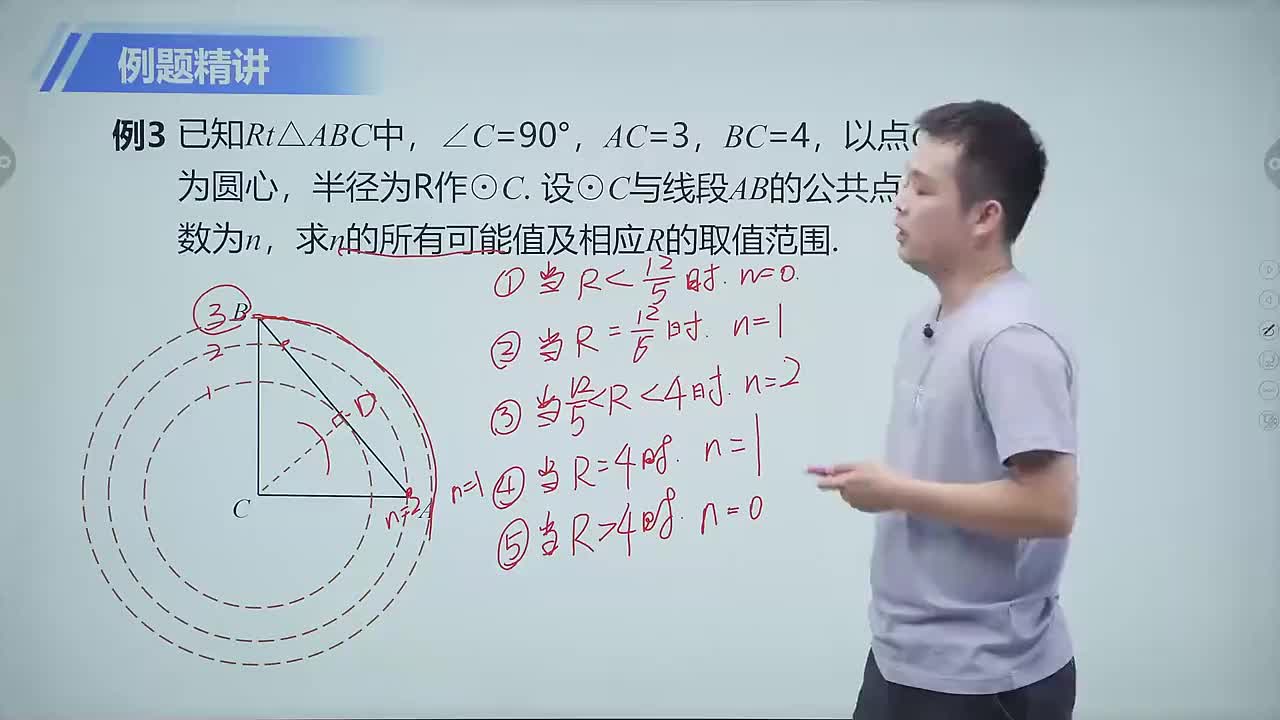 例题精讲
例3 已知Rt△ABC中，∠C=90°，AC=3，BC=4，以点
为圆心，半径为R作⊙C. 设⊙C与线段AB的公共点
数为n，求n的所有可能值及相应R的取值范围.
① 当 R < 12/5 时. n=0.
② 当 R = 12/5 时. n=1
③ 当 12/5 < R < 4 时. n=2
④ 当 R=4 时. n=1
⑤ 当 R>4 时. n=0
3 B
2
1
D
C
n=2 A
n=1